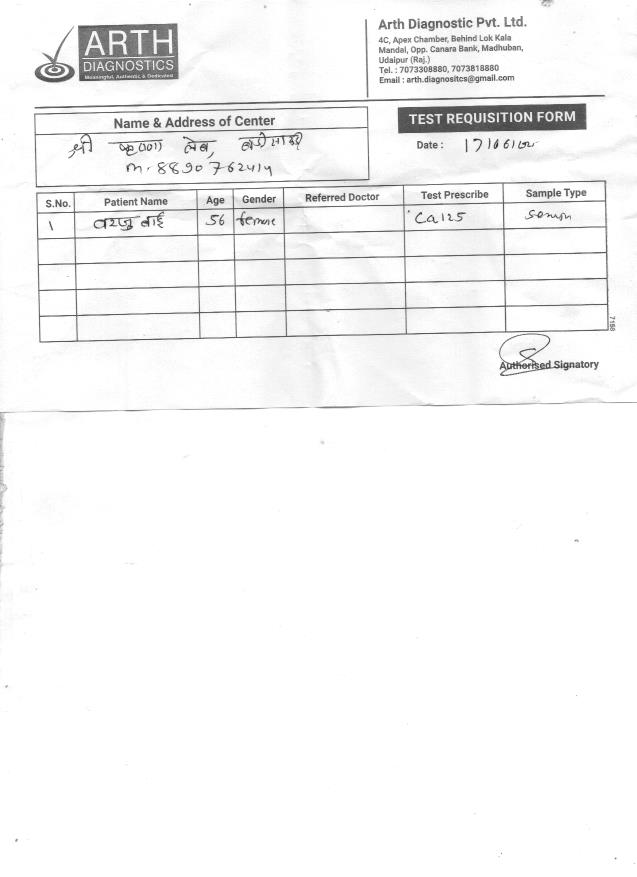 ARTH
DIAGNOSTICS
Meaningful, Authentic & Dedicated
Arth Diagnostic Pvt. Ltd.
4C, Apex Chamber, Behind Lok Kala
Mandal, Opp. Canara Bank, Madhuban,
Udaipur (Raj.)
Tel. : 7073308880, 7073818880
Email : arth.diagnositcs@gmail.com
Name & Address of Center
श्री कृष्णा लेब,
m. 8890762414
TEST REQUISITION FORM
Date : 17/06/22
S.No. Patient Name Age Gender Referred Doctor Test Prescribe Sample Type
1 बाई 56 female Ca125
7158
Authorised Signatory